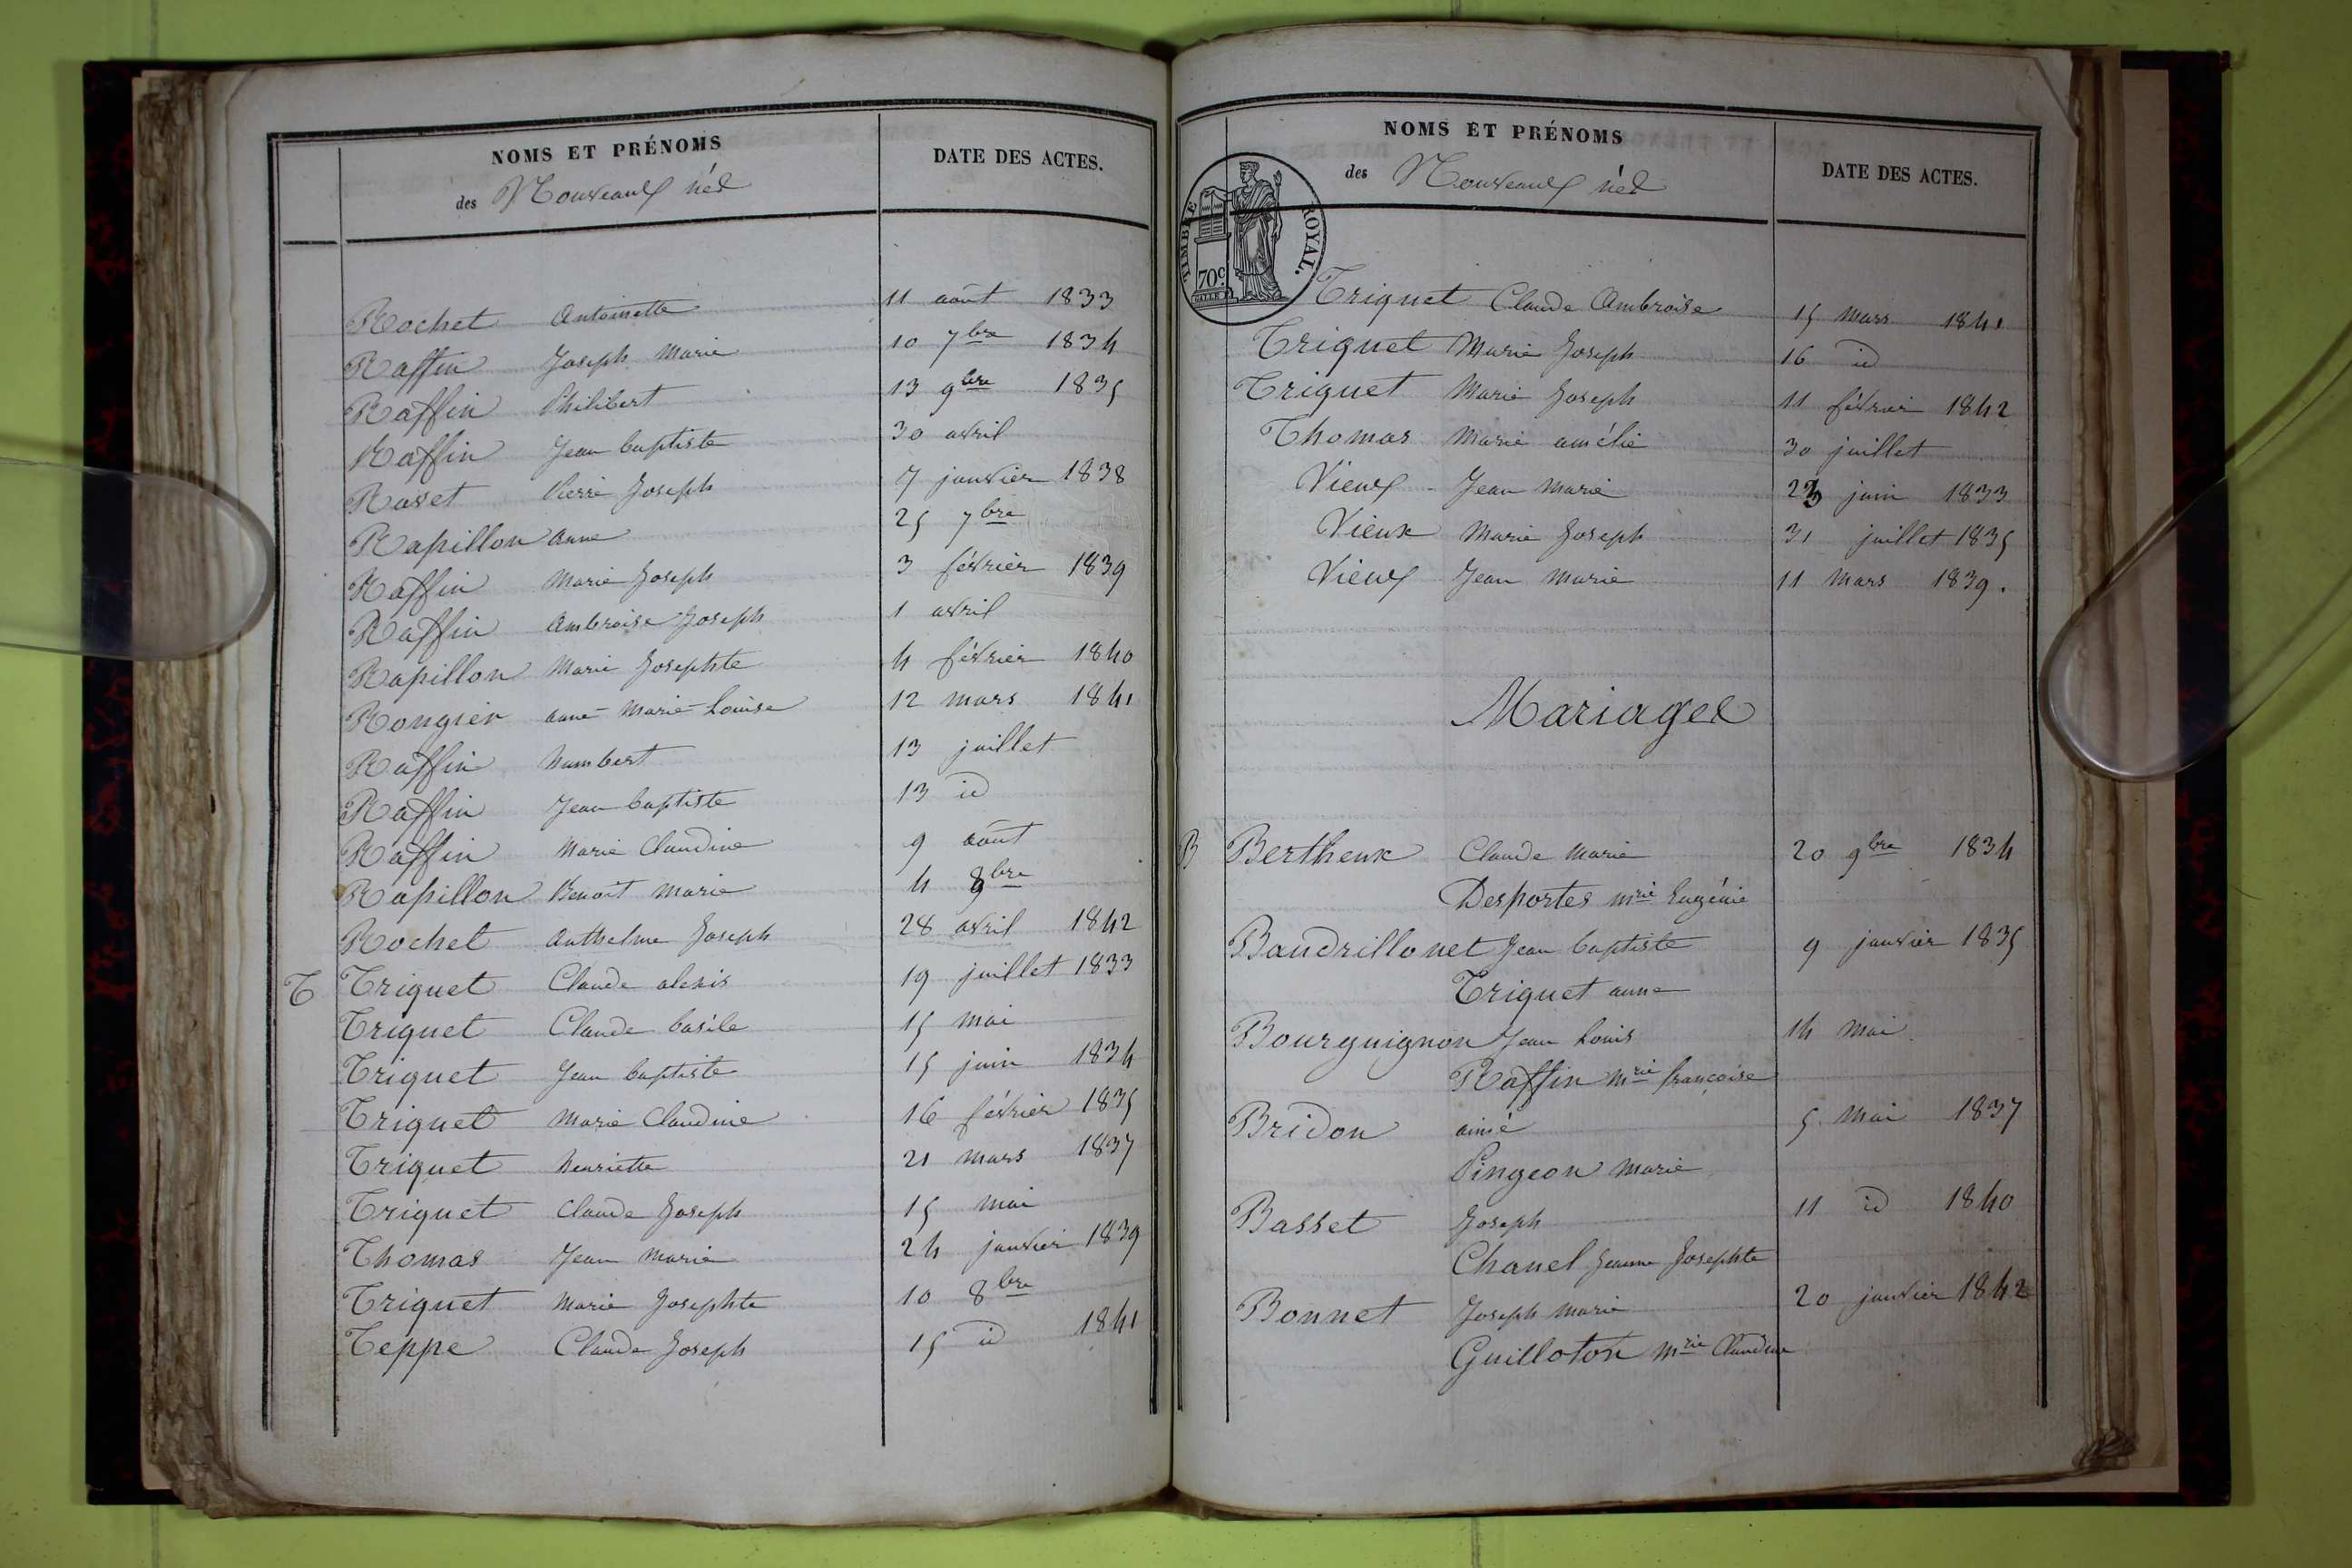 NOMS ET PRÉNOMS
des Nouveaux nés
DATE DES ACTES.
Rochet Antoinette 11 août 1833
Raffin Joseph Marie 10 7bre 1834
Raffin Philibert 13 9bre 1835
Raffin Jean baptiste 30 avril
Ravet Pierre Joseph 7 janvier 1838
Rapillon anne 25 7bre
Raffin Marie Joseph 3 février 1839
Raffin Ambroise Joseph 1 avril
Rapillon Marie Josephte 4 février 1840
Rongier anne-Marie-Louise 12 mars 1841
Raffin humbert 13 juillet
Raffin Jean baptiste 13 id
Raffin Marie Claudine 9 août
Rapillon Benoit Marie 4 8bre
Rochet Anthelme Joseph 28 avril 1842
T Triquet Claude alexis 19 juillet 1833
Triquet Claude basile 15 mai
Triquet Jean baptiste 15 juin 1834
Triquet Marie Claudine 16 février 1835
Triquet henriette 21 mars 1837
Triquet Claude Joseph 15 mai
Thomas Jean Marie 24 janvier 1839
Triquet Marie Josephte 10 8bre
Teppe Claude Joseph 15 id 1841
NOMS ET PRÉNOMS
des Nouveaux nés
DATE DES ACTES.
TIMBRE ROYAL.
70c
Triquet Claude Ambroise 15 mars 1841
Triquet Marie Joseph 16 id
Triquet Marie Joseph 11 février 1842
Thomas Marie amélie 30 juillet
Vieux Jean Marie juin 1833
Vieux Marie Joseph 31 juillet 1835
Vieux Jean Marie 11 mars 1839.
Mariages
B Bertheux Claude Marie 20 9bre 1834
Desportes mrie Eugénie
Baudrillonet Jean baptiste 9 janvier 1835
Triquet anne
Bourguignon Jean Louis 14 mai
Raffin mrie françoise
Bridon aimé 5 mai 1837
Pingeon Marie
Basset Joseph 11 id 1840
Chanel Jeanne Josephte
Bonnet Joseph Marie 20 janvier 1842
Guilloton mrie Claudine